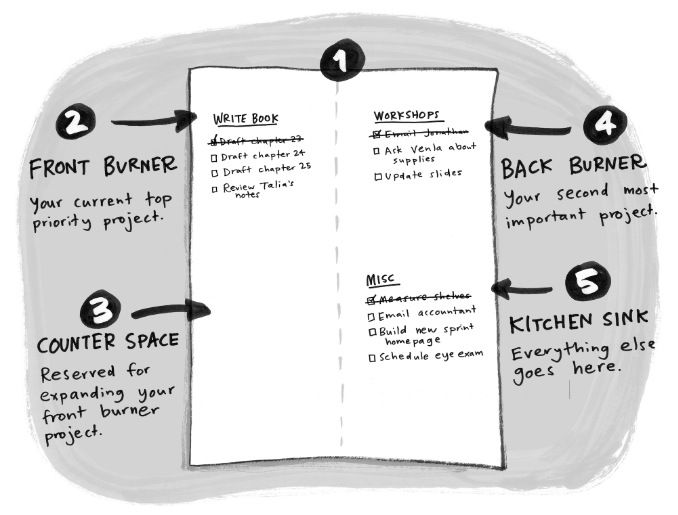 1
2
FRONT BURNER
Your current top
priority project.
3
COUNTER SPACE
Reserved for
expanding your
front burner
project.
WRITE BOOK
Draft chapter 23
Draft chapter 24
Draft chapter 25
Review Talia's
notes
WORKSHOPS
Email Jonathan
Ask Venla about
supplies
Update slides
MISC
Measure shelves
Email accountant
Build new sprint
homepage
Schedule eye exam
4
BACK BURNER
Your second most
important project.
5
KITCHEN SINK
Everything else
goes here.